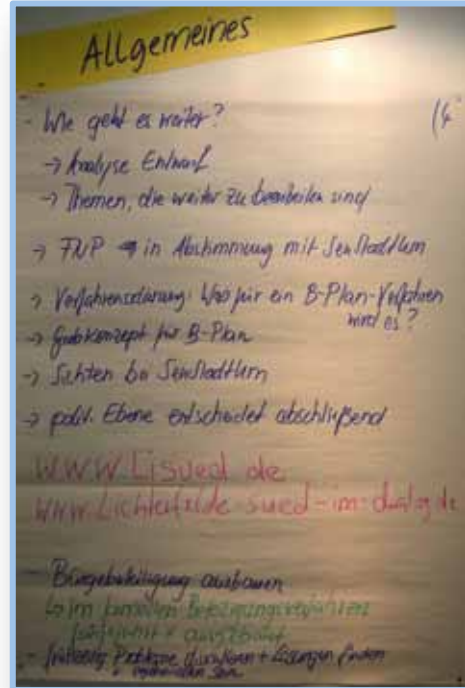 Allgemeines
- Wie geht es weiter?
→ Analyse Entwurf
→ Themen, die weiter zu bearbeiten sind
→ FNP → in Abstimmung mit SenStadtUm
→ Verfahrensklärung: Was für ein B-Plan-Verfahren
wird es?
→ Grobkonzept für B-Plan
→ bei SenStadtUm
→ polit. Ebene entscheidet abschließend
www.Lisued.de
www.Lichterfelde-sued-im-dialog.de
- Bürgerbeteiligung ausbauen
↳ im formellen
+
- frühzeitig Probleme + Lösungen finden